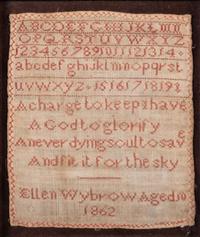 ABCDEFGHIJKLMN
OPQRSTUVWXYZ
1234567891011121314
abcdefghijklmnopqrst
uvwxyz 1516171819
A charge to keep I have
A God to glorify
A never dying soul to save
And fit it for the sky
Ellen Wybrow Aged 10
1862